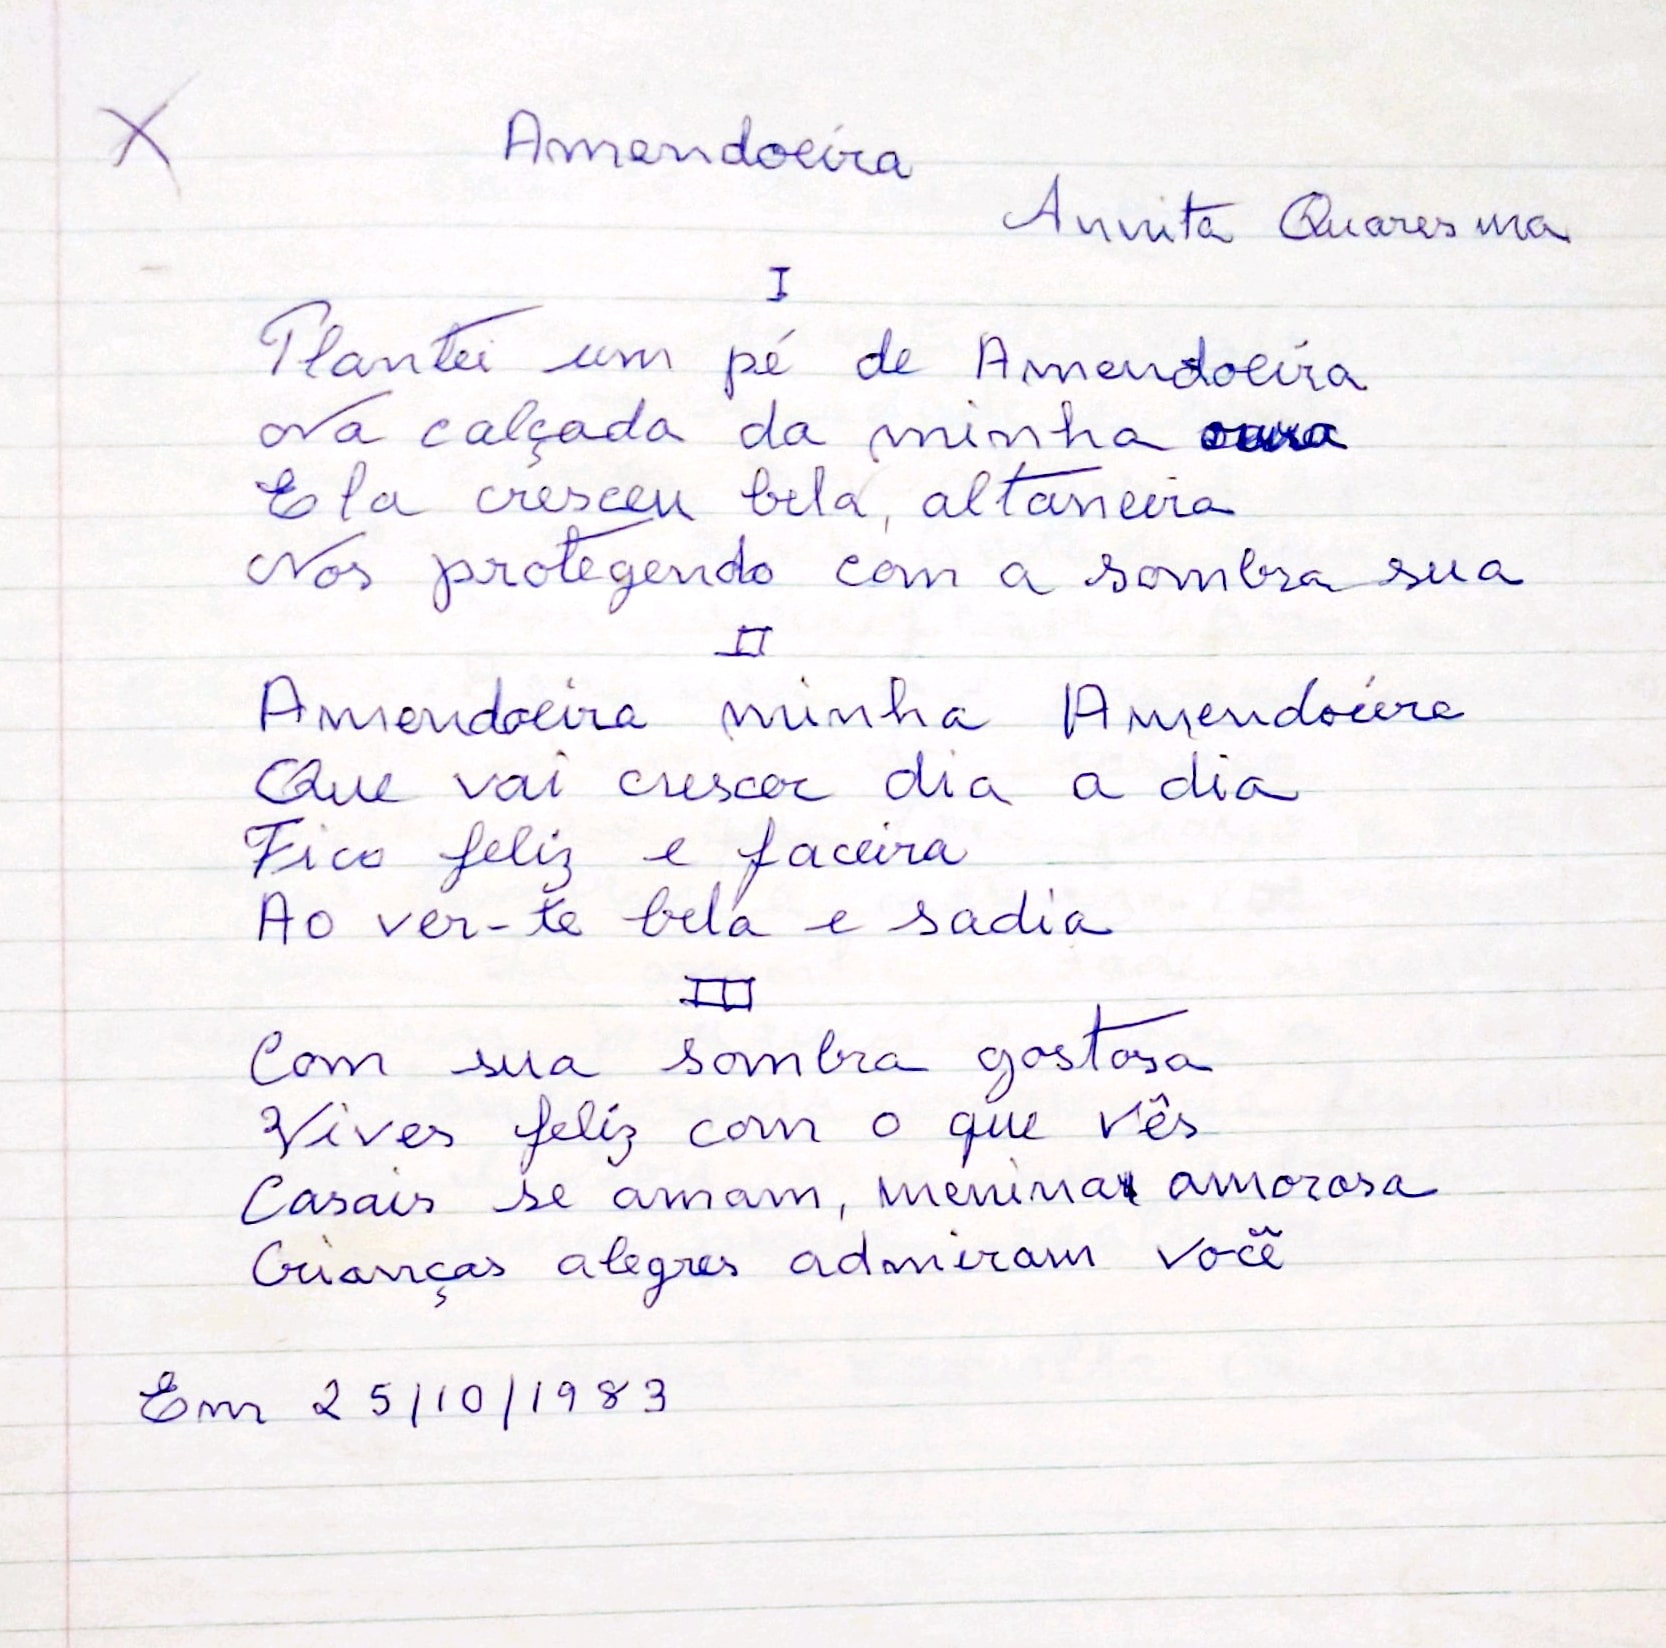 X
Amendoeira
Annita Quaresma
I
Plantei um pé de Amendoeira
Na calçada da minha rua
Ela cresceu bela, altaneira
Nos protegendo com a sombra sua
II
Amendoeira minha Amendoeira
Que vai crescer dia a dia
Fico feliz e faceira
Ao ver-te bela e sadia
III
Com sua sombra gostosa
Vives feliz com o que vês
Casais se amam, menina amorosa
Crianças alegres admiram você
Em 25/10/1983